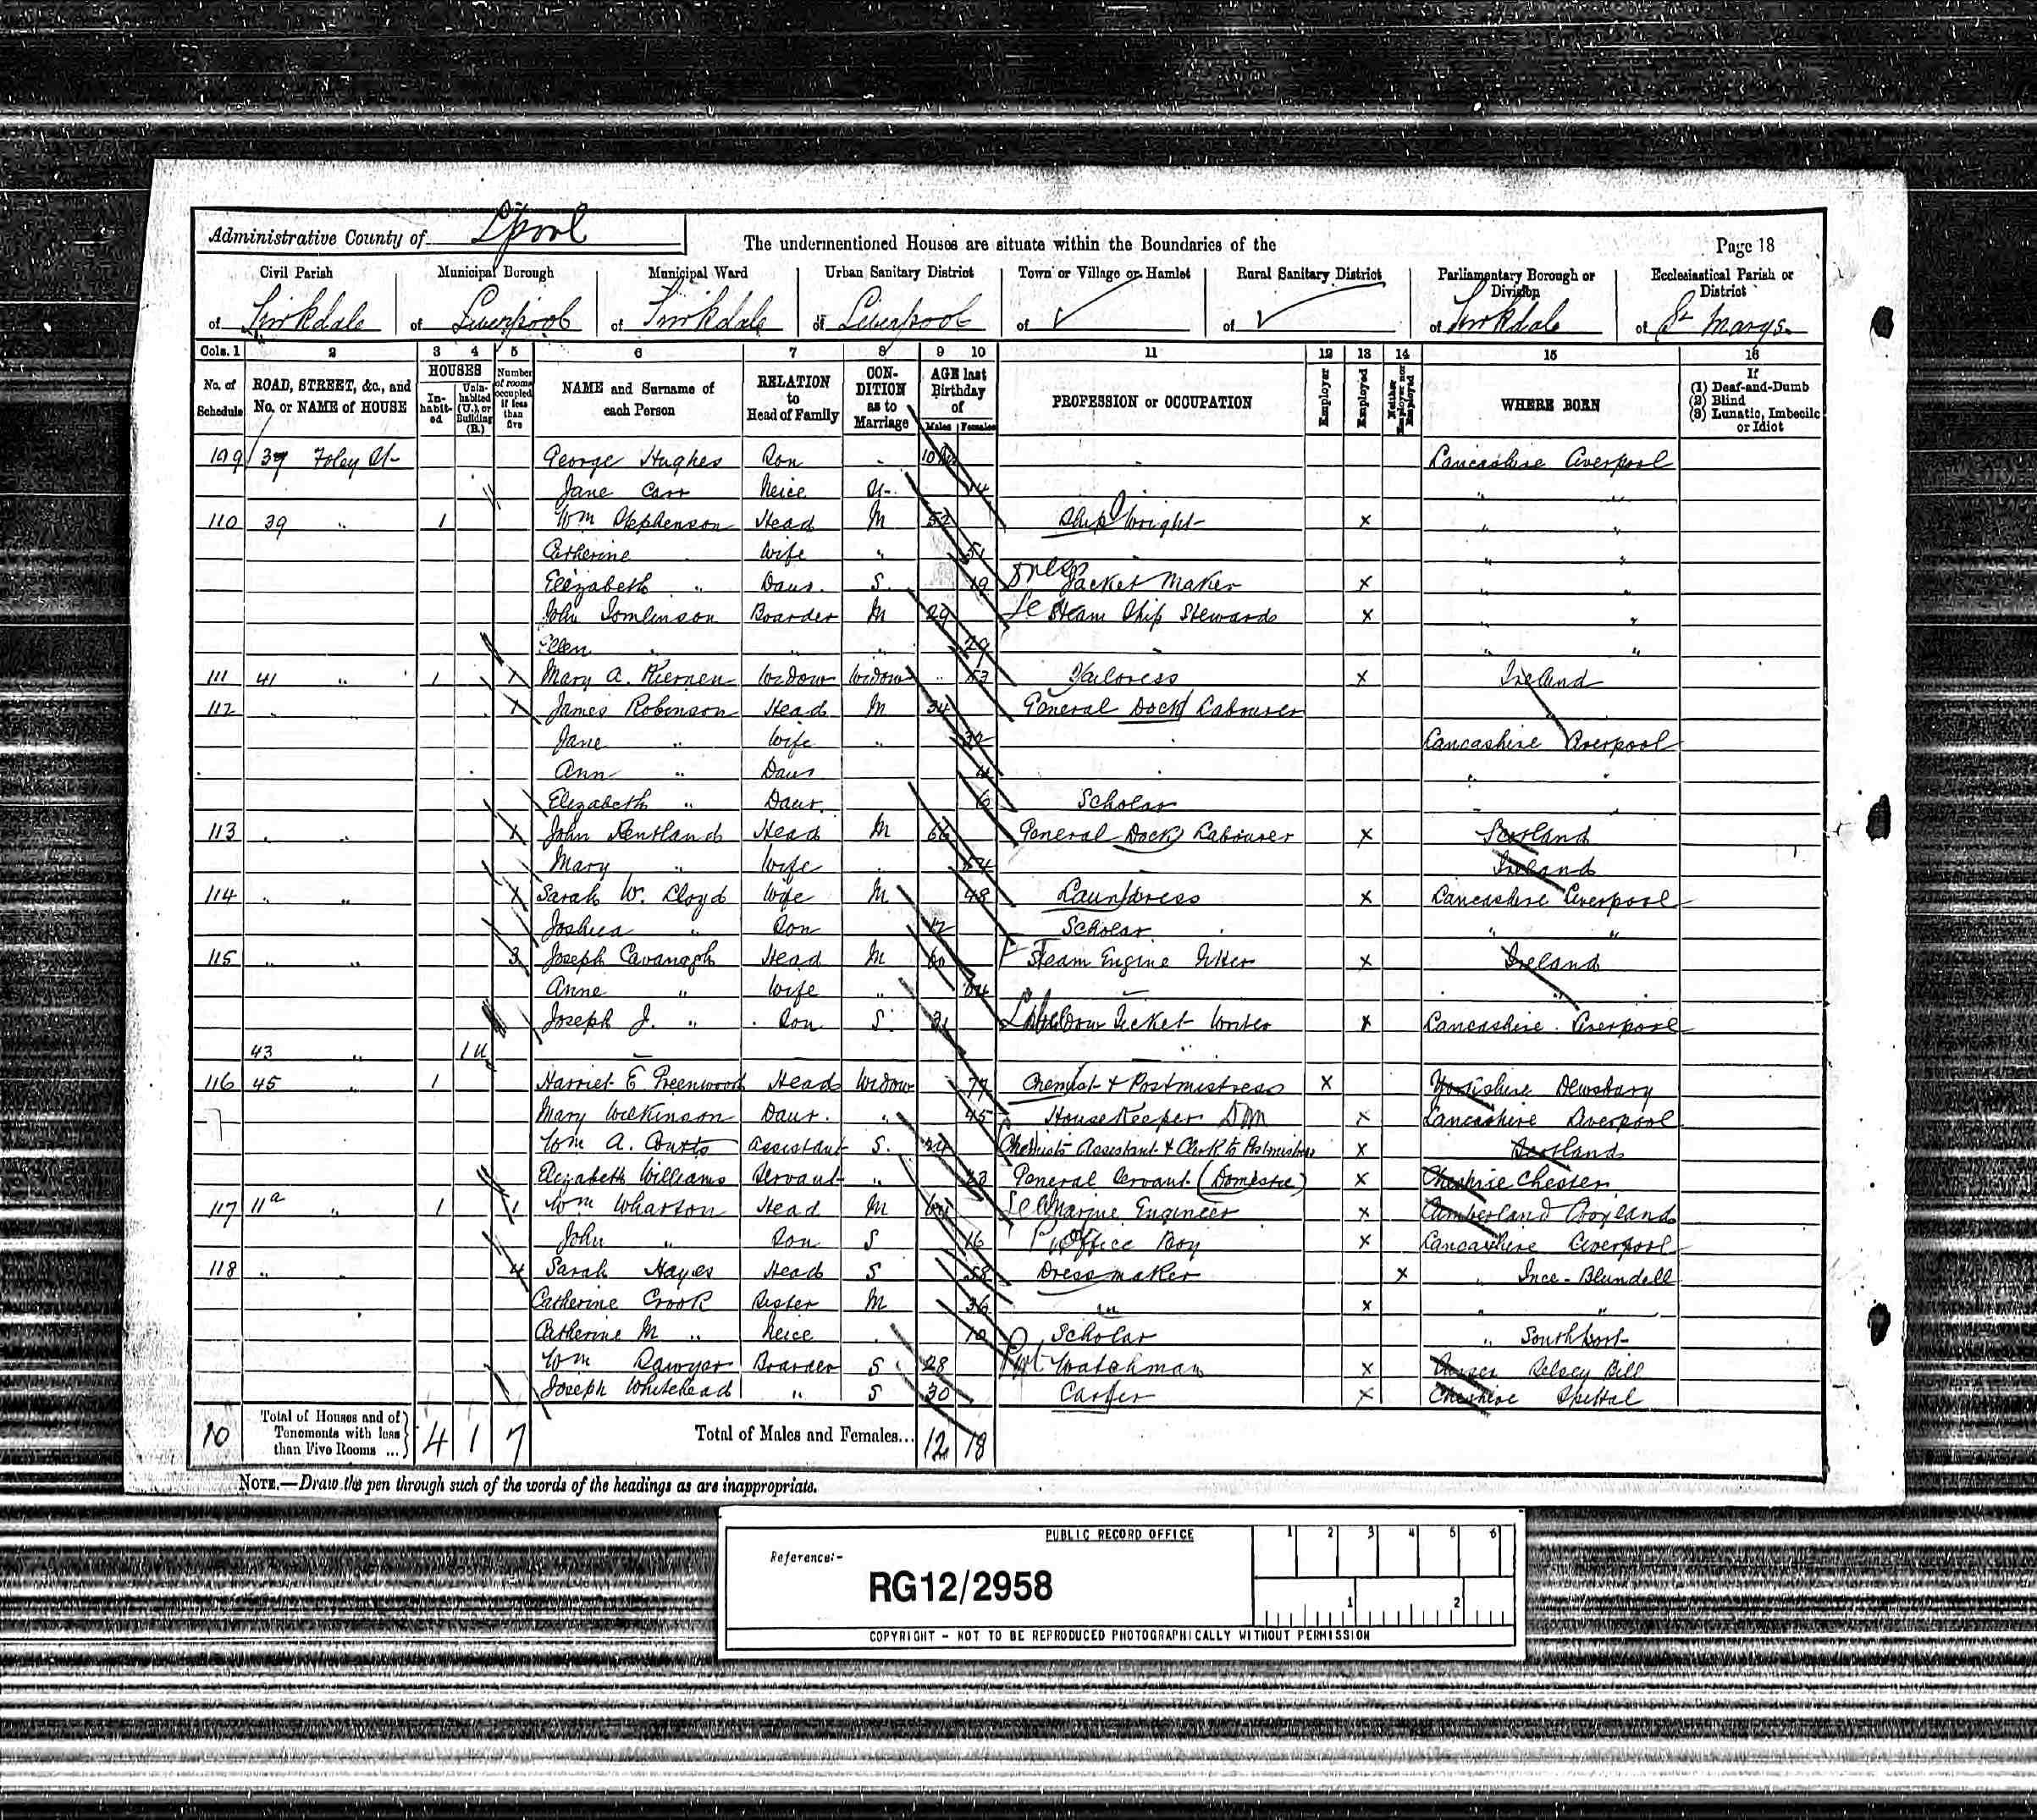 Administrative County of L'pool
The undermentioned Houses are situate within the Boundaries of the
Page 18
Civil Parish Municipal Borough Municipal Ward Urban Sanitary District Town or Village or Hamlet Rural Sanitary District Parliamentary Borough or Division Ecclesiastical Parish or District
of Kirkdale of Liverpool of Kirkdale of Liverpool of of of Kirkdale of St Marys
Cols. 1 2 3 4 5 6 7 8 9 10 11 12 13 14 15 16
No. of Schedule ROAD, STREET, &c., and No. or NAME of HOUSE HOUSES Inhabited Uninhabited (U.), or Building (B.) Number of rooms occupied if less than five NAME and Surname of each Person RELATION to Head of Family CONDITION as to Marriage AGE last Birthday of Males Females PROFESSION or OCCUPATION Employer Employed Neither Employer nor Employed WHERE BORN If (1) Deaf-and-Dumb (2) Blind (3) Lunatic, Imbecile or Idiot
109 37 Foley St George Hughes Son Lancashire Liverpool
Jane Carr Neice 14 " "
110 39 " 1 Wm Stephenson Head M 52 Ship Wright X " "
Catherine Wife " 51 " "
Elizabeth " Daur. S. 19 Jacket Maker X " "
John Tomlinson Boarder M 29 Steam Ship Stewards X " "
Ellen " " " 29 " "
111 41 " 1 1 Mary A. Kiernen Widow Widow 53 Tailoress X Ireland
112 " " 1 James Robinson Head M 34 General Dock Labourer
Jane " Wife " 32 Lancashire Liverpool
Ann " Daur " "
Elizabeth " Daur. 6 Scholar " "
113 " " 1 John Head M 66 General Dock Labourer X Scotland
Mary " Wife Ireland
114 " " 1 Sarah W. Lloyd Wife M 48 Laundress X Lancashire Liverpool
Joshua " Son 12 Scholar " "
115 " " 3 Joseph Cavanagh Head M 60 Steam Engine Fitter X Ireland
Anne " Wife " 64 "
Joseph J. " Son S. 21 Window Ticket Writer X Lancashire Liverpool
43 " 1 U
116 45 " 1 Harriet E Greenwood Head Widow 77 Chemist & Postmistress X Yorkshire Dewsbury
Mary Wilkinson Daur. " 45 HouseKeeper Dom X Lancashire Liverpool
Wm A. Coutts Assistant S. 24 Chemists Assistant & Clerk to Postmistress X Scotland
Elizabeth Williams Servant " 23 General Servant (Domestic) X Cheshire Chester
117 11a " 1 1 Wm Wharton Head M Marine Engineer X Cumberland
John " Son S 16 Office Boy X Lancashire Liverpool
118 " " 4 Sarah Hayes Head S 58 Dressmaker X " Ince-Blundell
Catherine Crook Sister M 36 X " "
Catherine M " Neice 10 Scholar " Southport
Wm Sawyer Boarder S 28 Watchman X Selsey Bill
Joseph Whitehead " S 30 Carter X Cheshire Spittal
10 Total of Houses and of Tenements with less than Five Rooms ... 4 1 7 Total of Males and Females... 12 18
NOTE.—Draw the pen through such of the words of the headings as are inappropriate.
PUBLIC RECORD OFFICE 1 2 3 4 5 6
Reference:-
RG12/2958
1 2
COPYRIGHT - NOT TO BE REPRODUCED PHOTOGRAPHICALLY WITHOUT PERMISSION